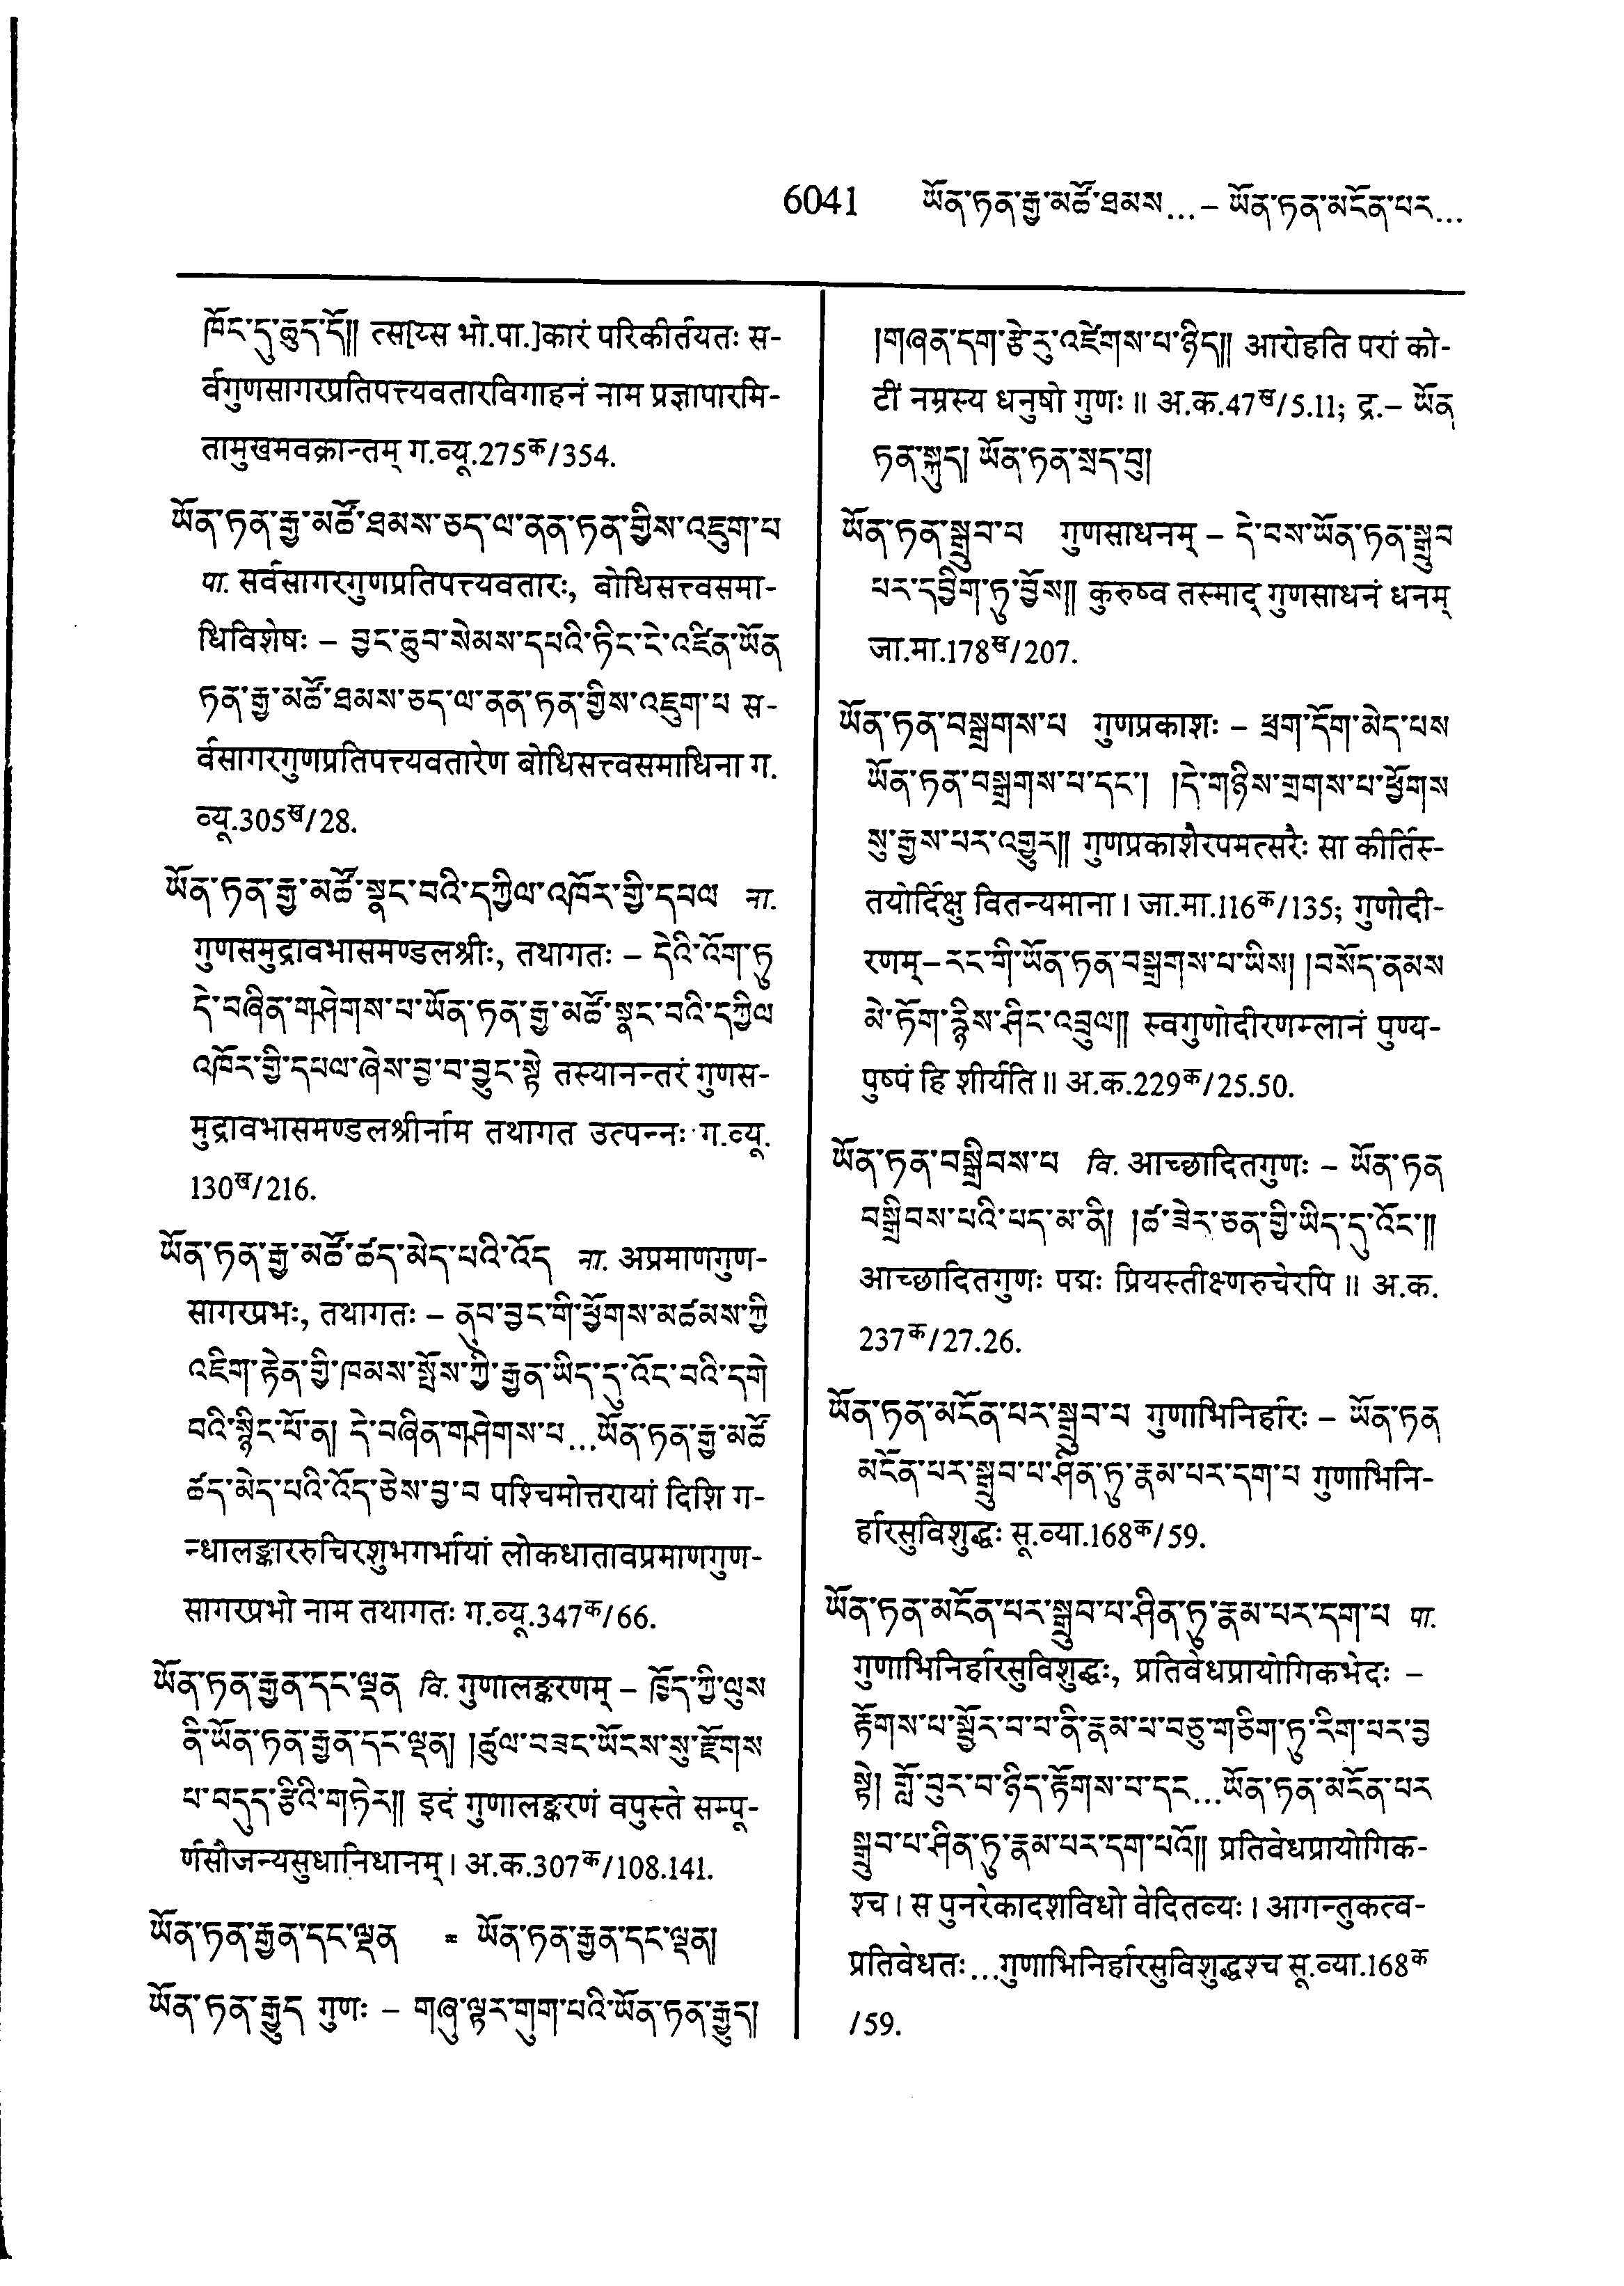 6041 ཡོན་ཏན་རྒྱ་མཚོ་ཐམས...– ཡོན་ཏན་མངོན་པར...
ཁོང་དུ་ཆུད་དོ།། त्स[य्स भो.पा.]कारं परिकीर्तयतः स-
र्वगुणसागरप्रतिपत्त्यवतारविगाहनं नाम प्रज्ञापारमि-
तामुखमवक्रान्तम् ग.व्यू.275क/354.
ཡོན་ཏན་རྒྱ་མཚོ་ཐམས་ཅད་ལ་ནན་ཏན་གྱིས་འཇུག་པ
पा. सर्वसागरगुणप्रतिपत्त्यवतारः, बोधिसत्त्वसमा-
धिविशेषः – བྱང་ཆུབ་སེམས་དཔའི་ཏིང་ངེ་འཛིན་ཡོན
ཏན་རྒྱ་མཚོ་ཐམས་ཅད་ལ་ནན་ཏན་གྱིས་འཇུག་པ स-
र्वसागरगुणप्रतिपत्त्यवतारेण बोधिसत्त्वसमाधिना ग.
व्यू.305ख/28.
ཡོན་ཏན་རྒྱ་མཚོ་སྣང་བའི་དཀྱིལ་འཁོར་གྱི་དཔལ ना.
गुणसमुद्रावभासमण्डलश्रीः, तथागतः – དེའི་འོག་ཏུ
དེ་བཞིན་གཤེགས་པ་ཡོན་ཏན་རྒྱ་མཚོ་སྣང་བའི་དཀྱིལ
འཁོར་གྱི་དཔལ་ཞེས་བྱ་བ་བྱུང་སྟེ तस्यानन्तरं गुणस-
मुद्रावभासमण्डलश्रीर्नाम तथागत उत्पन्नः ग.व्यू.
130ख/216.
ཡོན་ཏན་རྒྱ་མཚོ་ཚད་མེད་པའི་འོད ना. अप्रमाणगुण-
सागरप्रभः, तथागतः – ནུབ་བྱང་གི་ཕྱོགས་མཚམས་ཀྱི
འཇིག་རྟེན་གྱི་ཁམས་སྤོས་ཀྱི་རྒྱན་ཡིད་དུ་འོང་བའི་དགེ
བའི་སྙིང་པོ་ན། དེ་བཞིན་གཤེགས་པ...ཡོན་ཏན་རྒྱ་མཚོ
ཚད་མེད་པའི་འོད་ཅེས་བྱ་བ पश्चिमोत्तरायां दिशि ग-
न्धालङ्काररुचिरशुभगर्भायां लोकधातावप्रमाणगुण-
सागरप्रभो नाम तथागतः ग.व्यू.347क/66.
ཡོན་ཏན་རྒྱན་དང་ལྡན वि. गुणालङ्करणम् – ཁྱོད་ཀྱི་ལུས
ནི་ཡོན་ཏན་རྒྱན་དང་ལྡན། །ཚུལ་བཟང་ཡོངས་སུ་རྫོགས
པ་བདུད་རྩིའི་གཏེར།། इदं गुणालङ्करणं वपुस्ते सम्पू-
र्णसौजन्यसुधानिधानम्। अ.क.307क/108.141.
ཡོན་ཏན་རྒྱན་དང་ལྡན = ཡོན་ཏན་རྒྱན་དང་ལྡན།
ཡོན་ཏན་རྒྱུད गुणः – གཞུ་ལྟར་གུག་པའི་ཡོན་ཏན་རྒྱུད།
།གཞན་དག་རྩེ་རུ་འཛེགས་པ་ཉིད།། आरोहति परां को-
टीं नम्रस्य धनुषो गुणः॥ अ.क.47ख/5.11; द्र.– ཡོན
ཏན་སྐུད། ཡོན་ཏན་སྲད་བུ།
ཡོན་ཏན་སྒྲུབ་པ गुणसाधनम् – དེ་བས་ཡོན་ཏན་སྒྲུབ
པར་དབྱིག་ཏུ་བྱོས།། कुरुष्व तस्माद् गुणसाधनं धनम्
जा.मा.178ख/207.
ཡོན་ཏན་བསྒྲགས་པ गुणप्रकाशः – ཕྲག་དོག་མེད་པས
ཡོན་ཏན་བསྒྲགས་པ་དང་། །དེ་གཉིས་གྲགས་པ་ཕྱོགས
སུ་རྒྱས་པར་འགྱུར།། गुणप्रकाशैरपमत्सरैः सा कीर्तिस्-
तयोर्दिक्षु वितन्यमाना। जा.मा.116क/135; गुणोदी-
रणम्– རང་གི་ཡོན་ཏན་བསྒྲགས་པ་ཡིས། །བསོད་ནམས
མེ་ཏོག་རྙིས་ཤིང་འབྲུལ།། स्वगुणोदीरणम्लानं पुण्य-
पुष्पं हि शीर्यति॥ अ.क.229क/25.50.
ཡོན་ཏན་བསྒྲིབས་པ वि. आच्छादितगुणः – ཡོན་ཏན
བསྒྲིབས་པའི་པད་མ་ནི། །ཚ་ཟེར་ཅན་གྱི་ཡིད་དུ་འོང་།།
आच्छादितगुणः पद्मः प्रियस्तीक्ष्णरुचेरपि॥ अ.क.
237क/27.26.
ཡོན་ཏན་མངོན་པར་སྒྲུབ་པ गुणाभिनिर्हारः – ཡོན་ཏན
མངོན་པར་སྒྲུབ་པ་ཤིན་ཏུ་རྣམ་པར་དག་པ गुणाभिनि-
र्हारसुविशुद्धः सू.व्या.168क/59.
ཡོན་ཏན་མངོན་པར་སྒྲུབ་པ་ཤིན་ཏུ་རྣམ་པར་དག་པ पा.
गुणाभिनिर्हारसुविशुद्धः, प्रतिवेधप्रायोगिकभेदः –
རྟོགས་པ་སྦྱོར་བ་པ་ནི་རྣམ་པ་བཅུ་གཅིག་ཏུ་རིག་པར་བྱ
སྟེ། གློ་བུར་བ་ཉིད་རྟོགས་པ་དང...ཡོན་ཏན་མངོན་པར
སྒྲུབ་པ་ཤིན་ཏུ་རྣམ་པར་དག་པའོ།། प्रतिवेधप्रायोगिक-
श्च। स पुनरेकादशविधो वेदितव्यः। आगन्तुकत्व-
प्रतिवेधतः...गुणाभिनिर्हारसुविशुद्धश्च सू.व्या.168क
/59.